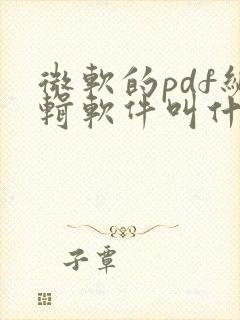 微軟的pdf編
輯軟件叫什
子蕈